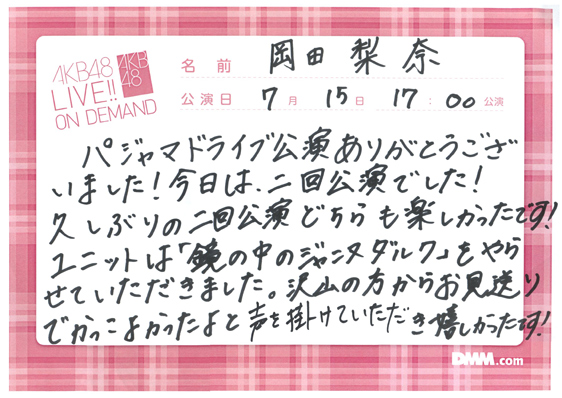 AKB48
LIVE!!
ON DEMAND
AKB
48
名前 岡田梨奈
公演日 7月 15日 17:00 公演
パジャマドライブ公演ありがとうござ
いました!今日は、二回公演でした!
久しぶりの二回公演どちらも楽しかったです!
ユニットは「鏡の中のジャンヌダルク」をやら
せていただきました。沢山の方からお見送り
でかっこよかったよと声を掛けていただき嬉しかったです!
DMM.com